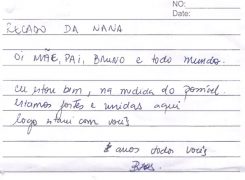 NO:
Date:
RECADO DA NANA
Oi MÃE, PAI, BRUNO e todo mundo.
eu estou bem, na medida do possível.
estamos fortes e unidas aqui
logo estarei com vocês
amos todos vocês